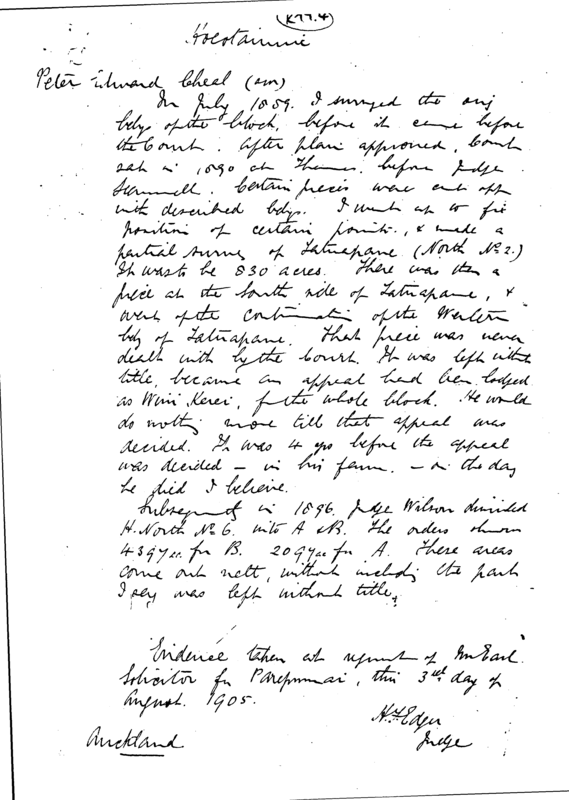 K77.4
Hikutaia
Peter Edward Cheal (sn)
In July 1889. I surveyed the orig
bdys of the block, before it came before
the Court. After plan approved, Court
sat in 1890 at Thames before Judge
Scannell. Certain pieces were cut off
with described bdys. I went up to fix
position of certain points, & made a
partial survey of Tatuapane (North No 2.)
It was to be 830 acres. There was then a
piece at the South side of Tatuapane, &
west of the continuation of the Western
bdy of Tatuapane. That piece was never
dealt with by the Court. It was left without
title, because an appeal had been lodged
as Wini Kerei, for the whole block. He would
do nothing more till that appeal was
decided. It was 4 yrs before the appeal
was decided – in his favr. – on the day
he died I believe.
Subsequently in 1896. Judge Wilson divided
H. North No 6. into A & B. The orders shown
4397 ac. for B. 2097 ac for A. These areas
come out nett, without including the part
I say was left without title.
Evidence taken at request of Mr Earl
Solicitor for, this 3rd day of
August. 1905.
H F Edger
Judge
Auckland